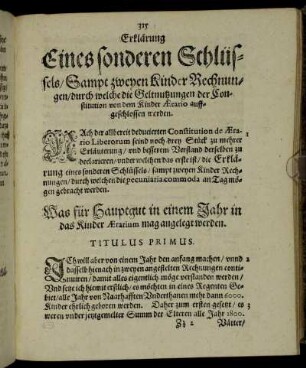 315
Erklärung
Eines sonderen Schlüs-
sels / Sampt zweyen Kinder Rechnun-
gen / durch welche die Geltnutzungen der Con-
stitution von dem Kinder Ærario auff-
geschlossen werden.
NAch der allbereit deducierten Constitution de Æra-
rio Liberorum seind noch drey Stuck zu mehrer
Erläuterung / vnd besserem Verstand derselben zu
declarieren / vnder welchen das erste ist / die Erklä-
rung eines sonderen Schlüssels / sampt zweyen Kinder Rech-
nungen / durch welchen die pecuniaria commoda an Tag mö-
gen gebracht werden.
Was für Hauptgut in einem Jahr in
das Kinder Ærarium mag angelegt werden.
TITULUS PRIMUS.
ICh will aber von einem Jahr den anfang machen / vnnd
dasselb hienach in zweyen angestelten Rechnungen conti-
nuirn / damit alles eigentlich möge verstanden werden /
Vnd setze ich hiemit erstlich / es möchten in eines Regenten Ge-
biet / alle Jahr von Naarhafften Vnderthanen mehr dann 6000.
Kinder ehrlich geboren werden. Daher zum ersten gesetzt / es
weren vnder jetztgemelter Summ der Elteren alle Jahr 1800.
Zz 2 Vätter /